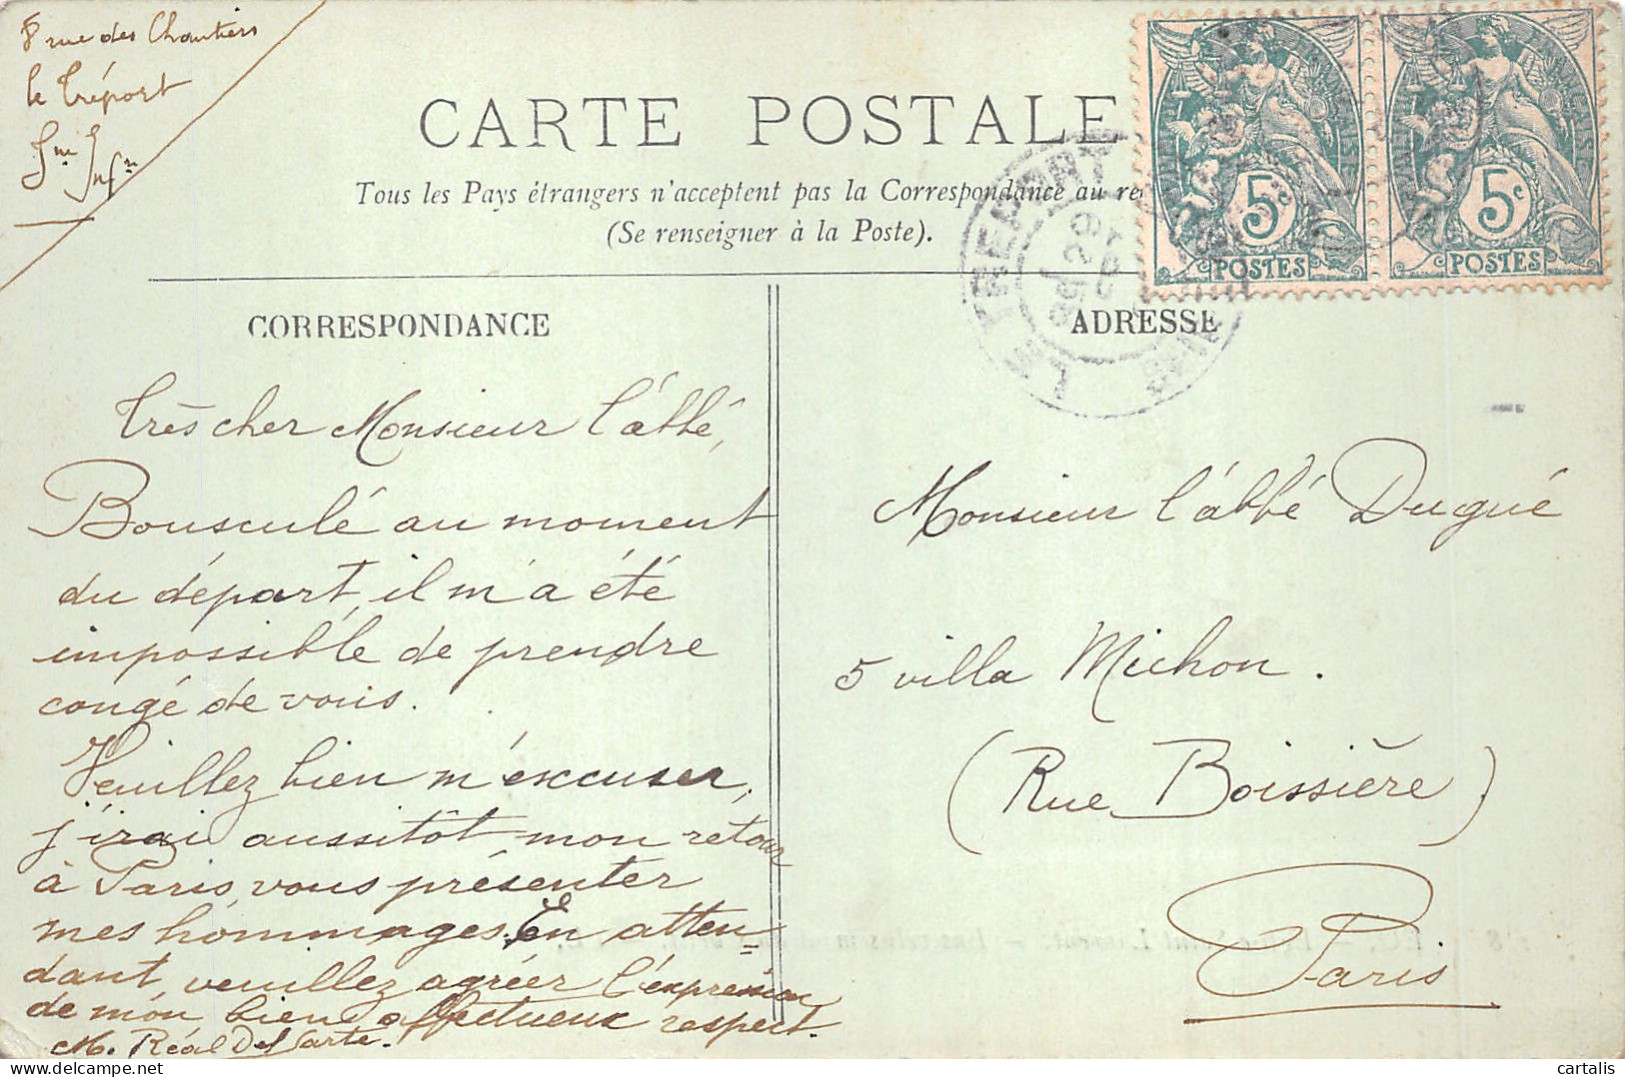 8 rue des Chantiers
le Tréport
Sne Infre
CARTE POSTALE
Tous les Pays étrangers n'acceptent pas la Correspondance au
(Se renseigner à la Poste).
5c
POSTES
5c
POSTES
LE TREPORT
CORRESPONDANCE
Très cher Monsieur l'abbé,
Bousculé au moment
du départ, il m'a été
impossible de prendre
congé de vous.
Veuillez bien m'excuser,
j'irai aussitôt mon retour
à Paris, vous présenter
mes hommages. En atten=
dant, veuillez agréer l'expression
de mon bien affectueux respect.
M. Réal Del Sarte.
ADRESSE
Monsieur l'abbé Dugué
5 villa Michon.
(Rue Boissière)
Paris
cartalis